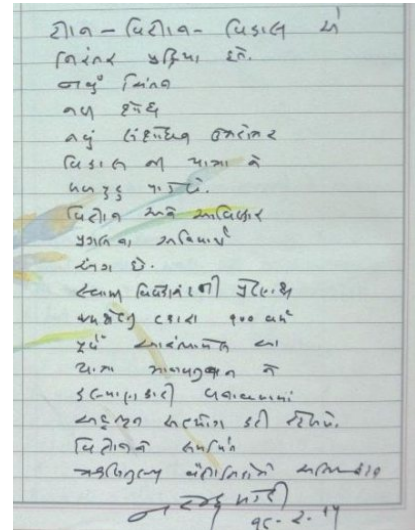 જ્ઞાન - વિજ્ઞાન - વિકાસ એ
નિરંતર પ્રક્રિયા છે.
નવું ચિંતન
નવી
નવું સંશોધન ઉત્તરોત્તર
વિકાસ ની યાત્રા ને
વિજ્ઞાન અને આવિષ્કાર
પ્રગતિના અનિવાર્ય
અંગ છે.
સ્વામી વિવેકાનંદની પ્રેરણાથી
જમશેદજી ટાટા ૧૦૦ વર્ષ
પૂર્વે આ
યાત્રા માનવજાત ને
કલ્યાણકારી બનાવવામાં
અદ્ભુત કરી રહી છે.
વિજ્ઞાનને સમર્પિત
વૈજ્ઞાનિકોને
નરેન્દ્ર મોદી
૧૮-૨-૧૫